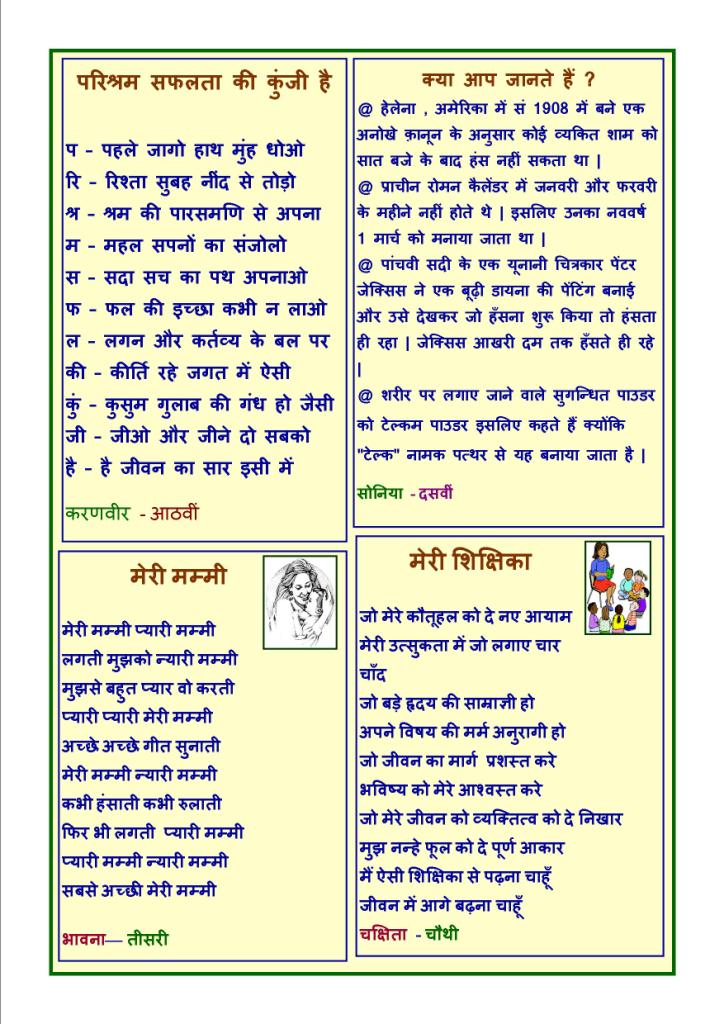 परिश्रम सफलता की कुंजी है
प - पहले जागो हाथ मुंह धोओ
रि - रिश्ता सुबह नींद से तोड़ो
श्र - श्रम की पारसमणि से अपना
म - महल सपनों का संजोलो
स - सदा सच का पथ अपनाओ
फ - फल की इच्छा कभी न लाओ
ल - लगन और कर्तव्य के बल पर
की - कीर्ति रहे जगत में ऐसी
कुं - कुसुम गुलाब की गंध हो जैसी
जी - जीओ और जीने दो सबको
है - है जीवन का सार इसी में
करणवीर - आठवीं
क्या आप जानते हैं ?
@ हेलेना , अमेरिका में सं 1908 में बने एक
अनोखे क़ानून के अनुसार कोई व्यकित शाम को
सात बजे के बाद हंस नहीं सकता था |
@ प्राचीन रोमन कैलेंडर में जनवरी और फरवरी
के महीने नहीं होते थे | इसलिए उनका नववर्ष
1 मार्च को मनाया जाता था |
@ पांचवी सदी के एक यूनानी चित्रकार पेंटर
जेक्सिस ने एक बूढ़ी डायना की पेंटिंग बनाई
और उसे देखकर जो हँसना शुरू किया तो हंसता
ही रहा | जेक्सिस आखरी दम तक हँसते ही रहे
|
@ शरीर पर लगाए जाने वाले सुगन्धित पाउडर
को टेल्कम पाउडर इसलिए कहते हैं क्योंकि
"टेल्क" नामक पत्थर से यह बनाया जाता है |
सोनिया - दसवीं
मेरी मम्मी
मेरी मम्मी प्यारी मम्मी
लगती मुझको न्यारी मम्मी
मुझसे बहुत प्यार वो करती
प्यारी प्यारी मेरी मम्मी
अच्छे अच्छे गीत सुनाती
मेरी मम्मी न्यारी मम्मी
कभी हंसाती कभी रुलाती
फिर भी लगती प्यारी मम्मी
प्यारी मम्मी न्यारी मम्मी
सबसे अच्छी मेरी मम्मी
भावना— तीसरी
मेरी शिक्षिका
जो मेरे कौतूहल को दे नए आयाम
मेरी उत्सुकता में जो लगाए चार
चाँद
जो बड़े हृदय की साम्राज्ञी हो
अपने विषय की मर्म अनुरागी हो
जो जीवन का मार्ग प्रशस्त करे
भविष्य को मेरे आश्वस्त करे
जो मेरे जीवन को व्यक्तित्व को दे निखार
मुझ नन्हे फूल को दे पूर्ण आकार
मैं ऐसी शिक्षिका से पढ़ना चाहूँ
जीवन में आगे बढ़ना चाहूँ
चक्षिता - चौथी